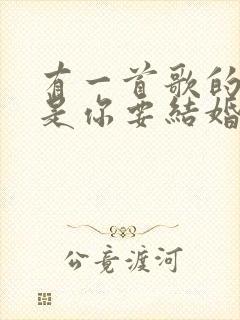 有一首歌的
是你要結婚
公竟渡河